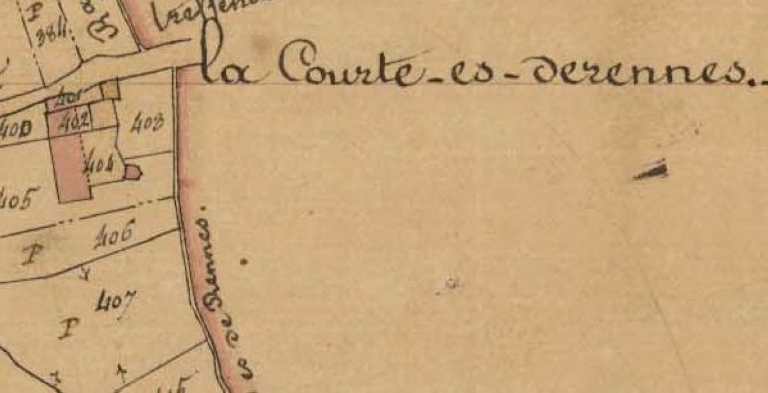 P
384
la Courte-es-derennes.
401
400
402
403
404
405
406
P
407
P
de Rennes.